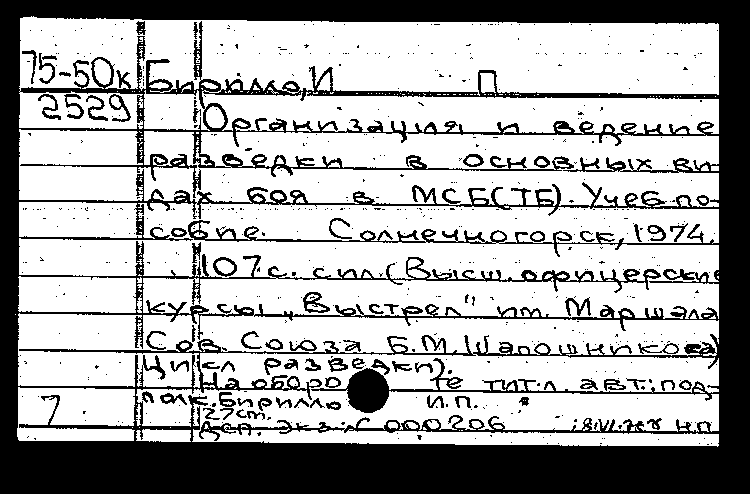 75-50к Бирилло, И П
2529 Организация и ведение
разведки в основных ви-
дах боя в МСБ(ТБ). Учеб. по-
собие. Солнечногорск, 1974.
107 с. с ил. (Высш. офицерские
курсы „Выстрел" им. Маршала
Сов. Союза Б.М. Шапошникова)
Цикл разведки).
На оборо те тит. л. авт.: под-
7 полк. Бирилло И.П.
27 см.
Дсп. экз. № 000206 нп